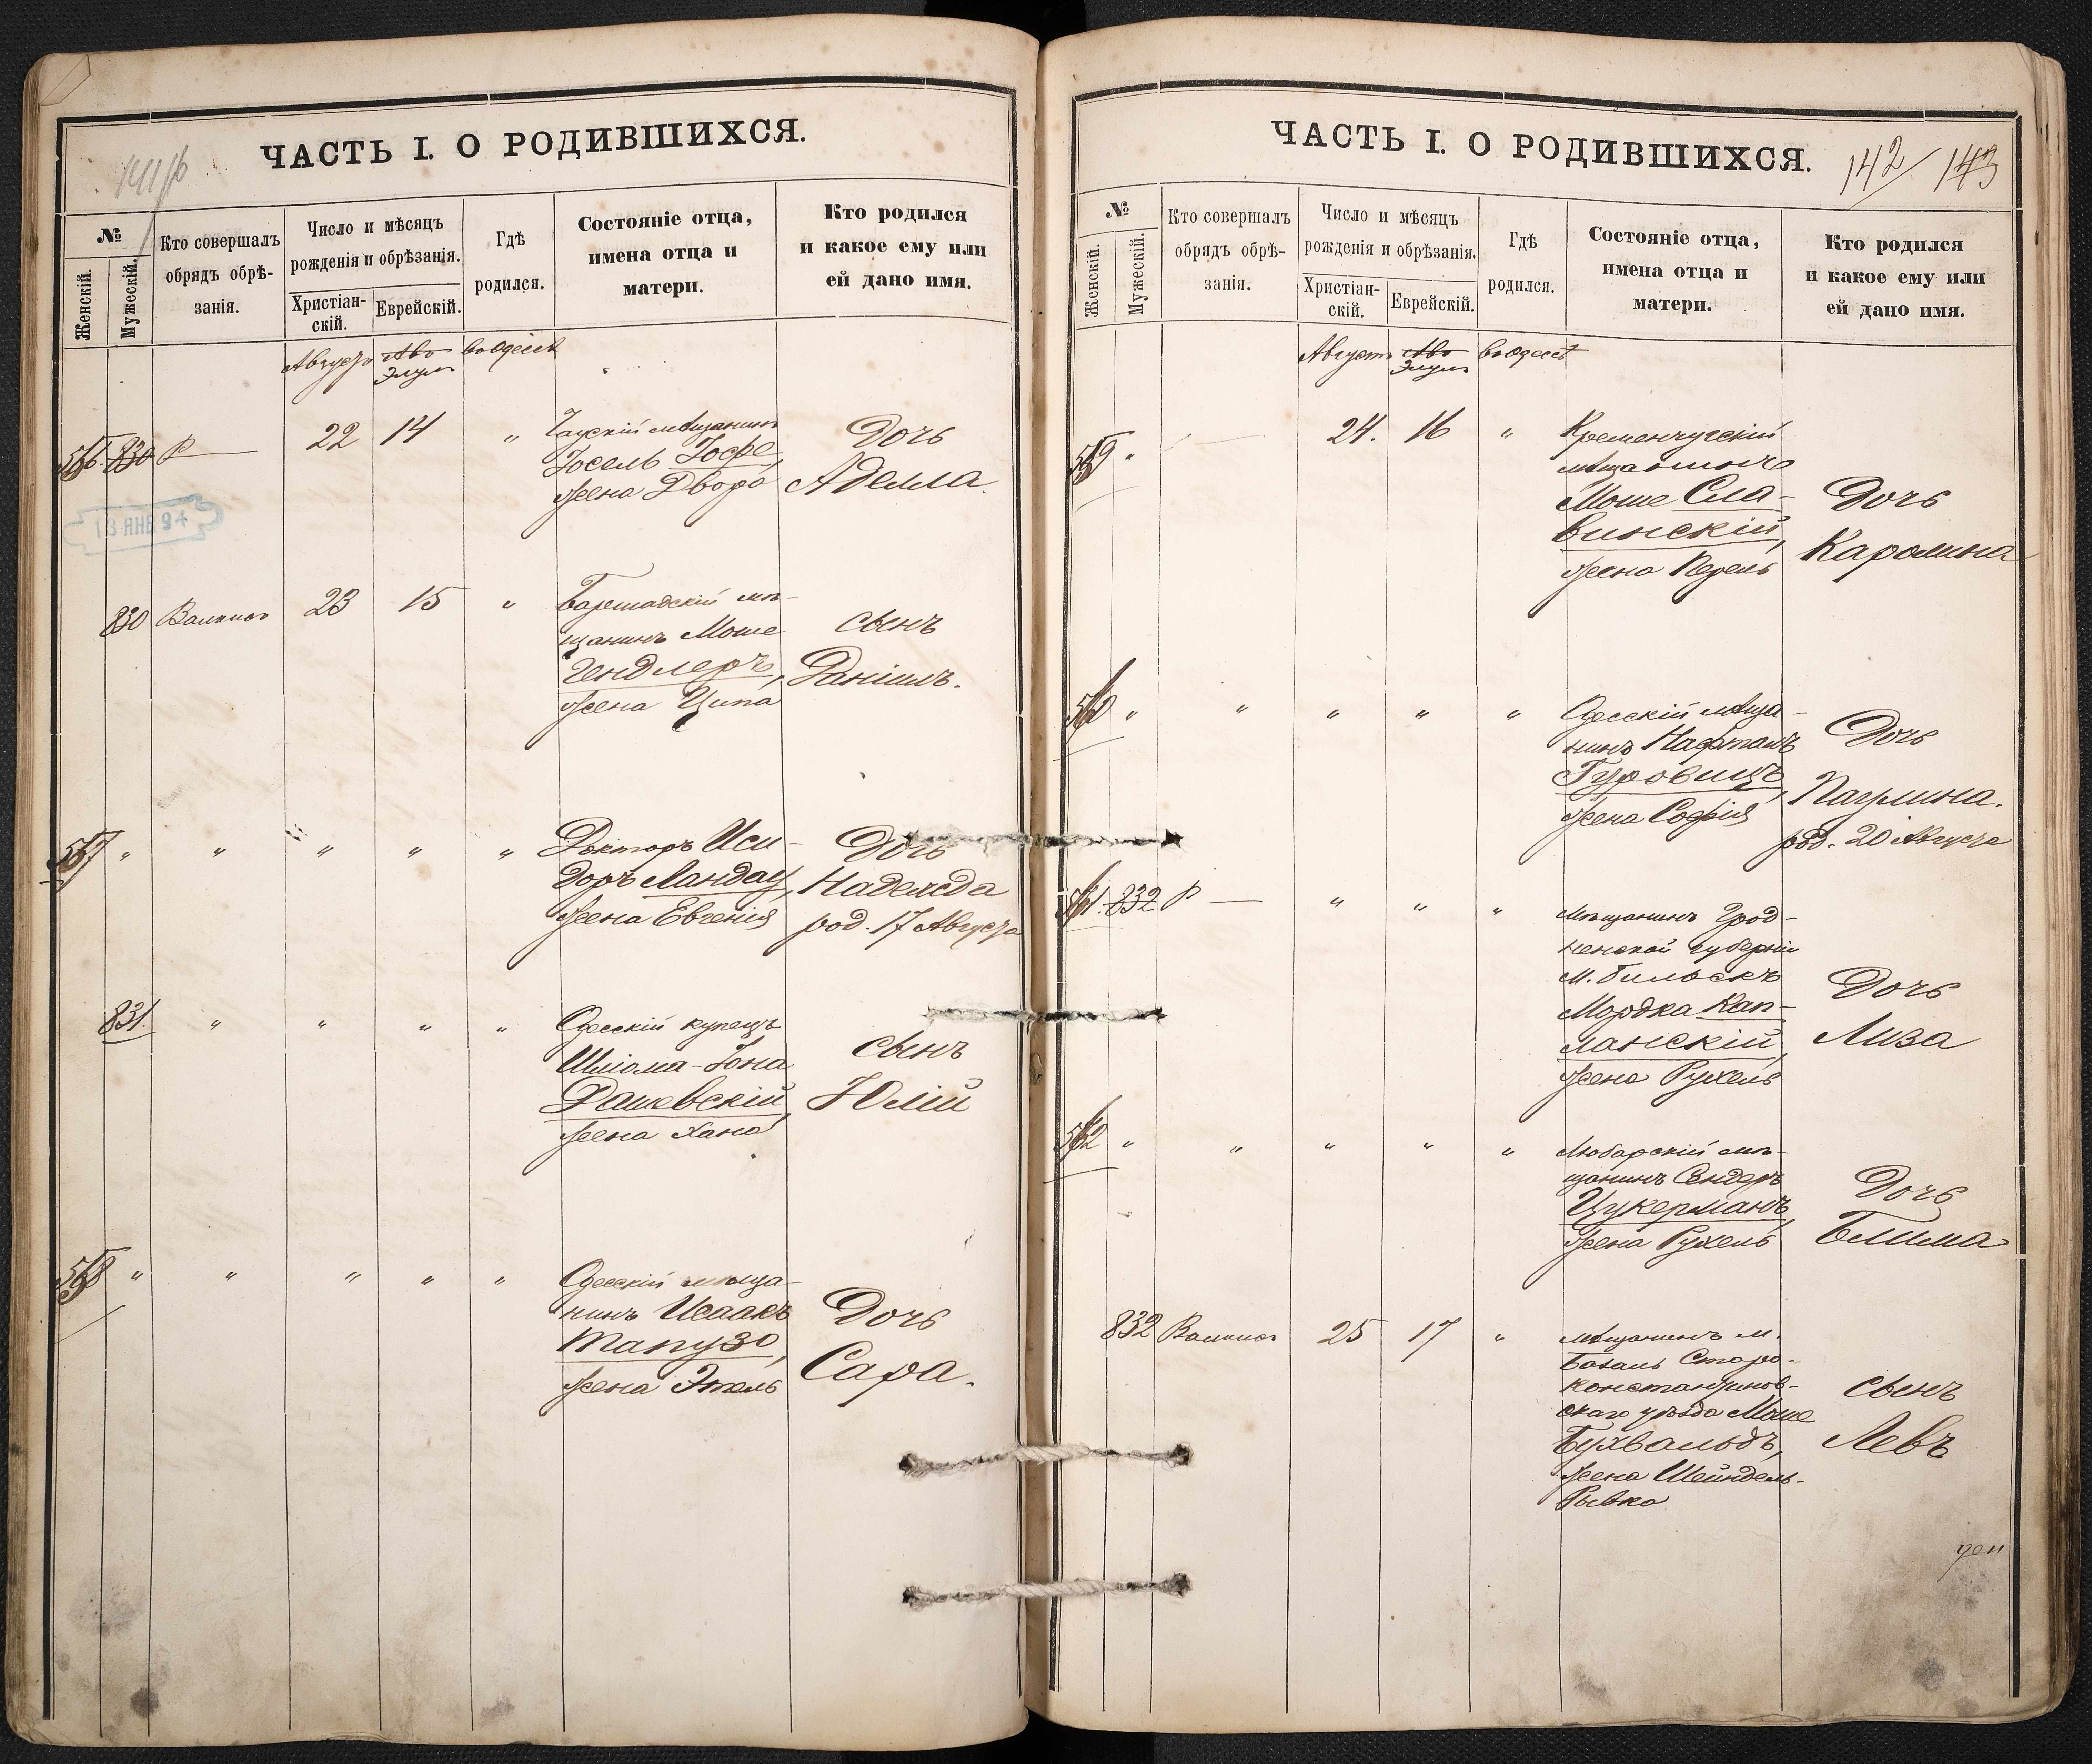 ЧАСТЬ I. О РОДИВШИХСЯ.
№
Женскій.
Мужескій.
Кто совершалъ
обрядъ обрѣ-
занія.
Число и мѣсяцъ
рожденія и обрѣзанія.
Христіан-
скій.
Еврейскій.
Гдѣ
родился.
Состояніе отца,
имена отца и
матери.
Кто родился
и какое ему или
ей дано имя.
Августъ Элулъ въ Одессѣ
830 22 14 "
мѣщанинъ
Іосель Іофе,
жена Двора
Дочь
Аделла.
13 ЯНВ 94
830 23 15 "
Баршадскій мѣ-
щанинъ Моше
Гендлеръ,
жена Ципа
Сынъ
Даніилъ.
557 " " " " "
Докторъ Иси-
доръ Ландау,
жена Евгенія
Дочь
Надежда
род. 17 Августа
831. " " " "
Одесскій купецъ
Шлiома-Іона
Дашевскій,
жена Хана
Сынъ
Юлій
558 " " " " "
Одесскій мѣща-
нинъ Исаакъ
Тапузо,
жена Этель
Дочь
Сара.
ЧАСТЬ I. О РОДИВШИХСЯ.
142/143
№
Женскій.
Мужескій.
Кто совершалъ
обрядъ обрѣ-
занія.
Число и мѣсяцъ
рожденія и обрѣзанія.
Христіан-
скій.
Еврейскій.
Гдѣ
родился.
Состояніе отца,
имена отца и
матери.
Кто родился
и какое ему или
ей дано имя.
Августъ Элулъ въ Одессѣ
559 " 24. 16 "
Кременчугскій
мѣщанинъ
Моше Сла-
винскій,
жена Перель
Дочь
Каролина
560 " " " " "
Одесскій мѣща-
нинъ Нафталь
Гуровицъ,
жена Софія
Дочь
Паулина.
род. 20 Августа
561. 832 " " "
Мѣщанинъ Грод-
ненской губерніи
м. Бильскъ
Мордка Кап-
ланскій,
жена Рухель
Дочь
Лиза
562 " " " " "
Любарскій мѣ-
щанинъ Сендеръ
Цукерманъ,
жена Рухель
Дочь
Блима
832 25 17 "
Мѣщанинъ м.
Старо-
константинов-
скаго уѣзда Моше
Бухвальдъ,
жена Шейндель-
Рывка
Сынъ
Левъ